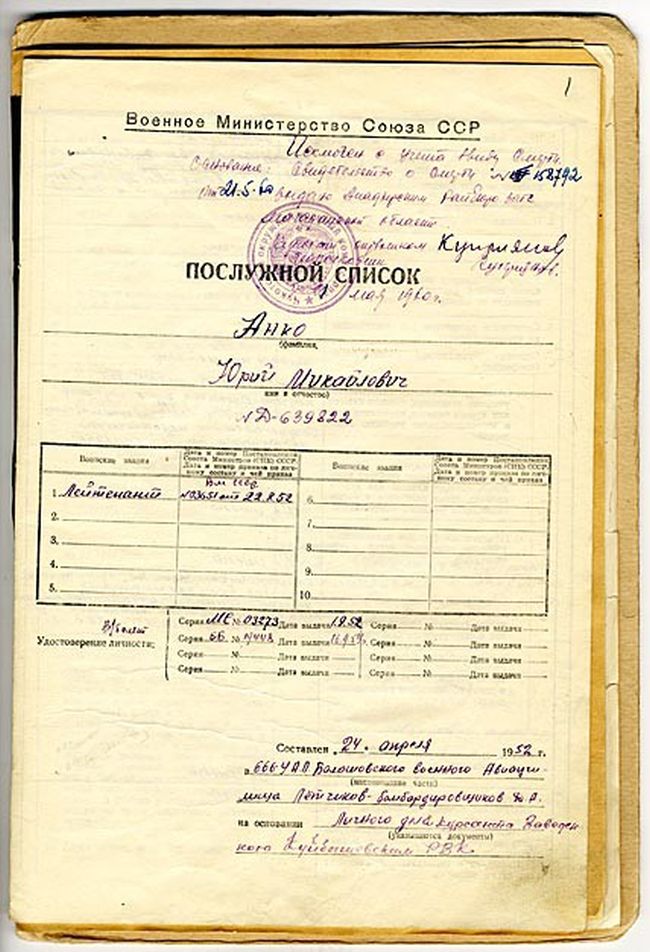 1
Военное Министерство Союза ССР
с учета ввиду смерти
Основание: Свидетельство о смерти № 158792
от 21-5-60 выдано Анадырским Райбюро загс
Магаданской области
Куприянов
ПОСЛУЖНОЙ СПИСОК
мая 1960г.
Анко
(фамилия,
Юрий Михайлович
имя и отчество)
№Д-639822
Воинские звания
Дата и номер Постановления Совета Министров (СНК) СССР. Дата и номер приказа по личному составу и чей приказ
Воинские звания
Дата и номер Постановления Совета Министров (СНК) СССР. Дата и номер приказа по личному составу и чей приказ
1. Лейтенант
№03651 от 22.9.52
6.
2.
7.
3.
8.
4.
9.
5.
10.
Удостоверение личности;
Серия МС № 03273 Дата выдачи 1.9.52 Серия № Дата выдачи
Серия ББ № Дата выдачи Серия № Дата выдачи
Серия № Дата выдачи Серия № Дата выдачи
Серия № Дата выдачи Серия № Дата выдачи
Составлен 24. апреля 1952 г.
в 666 УАП Балашовского военного Авиаучи-
(наименование части)
лища Летчиков-бомбардировщиков
на основании Личного дела курсанта Заведен
(указываются документы)
ного Куйбышевским РВК.